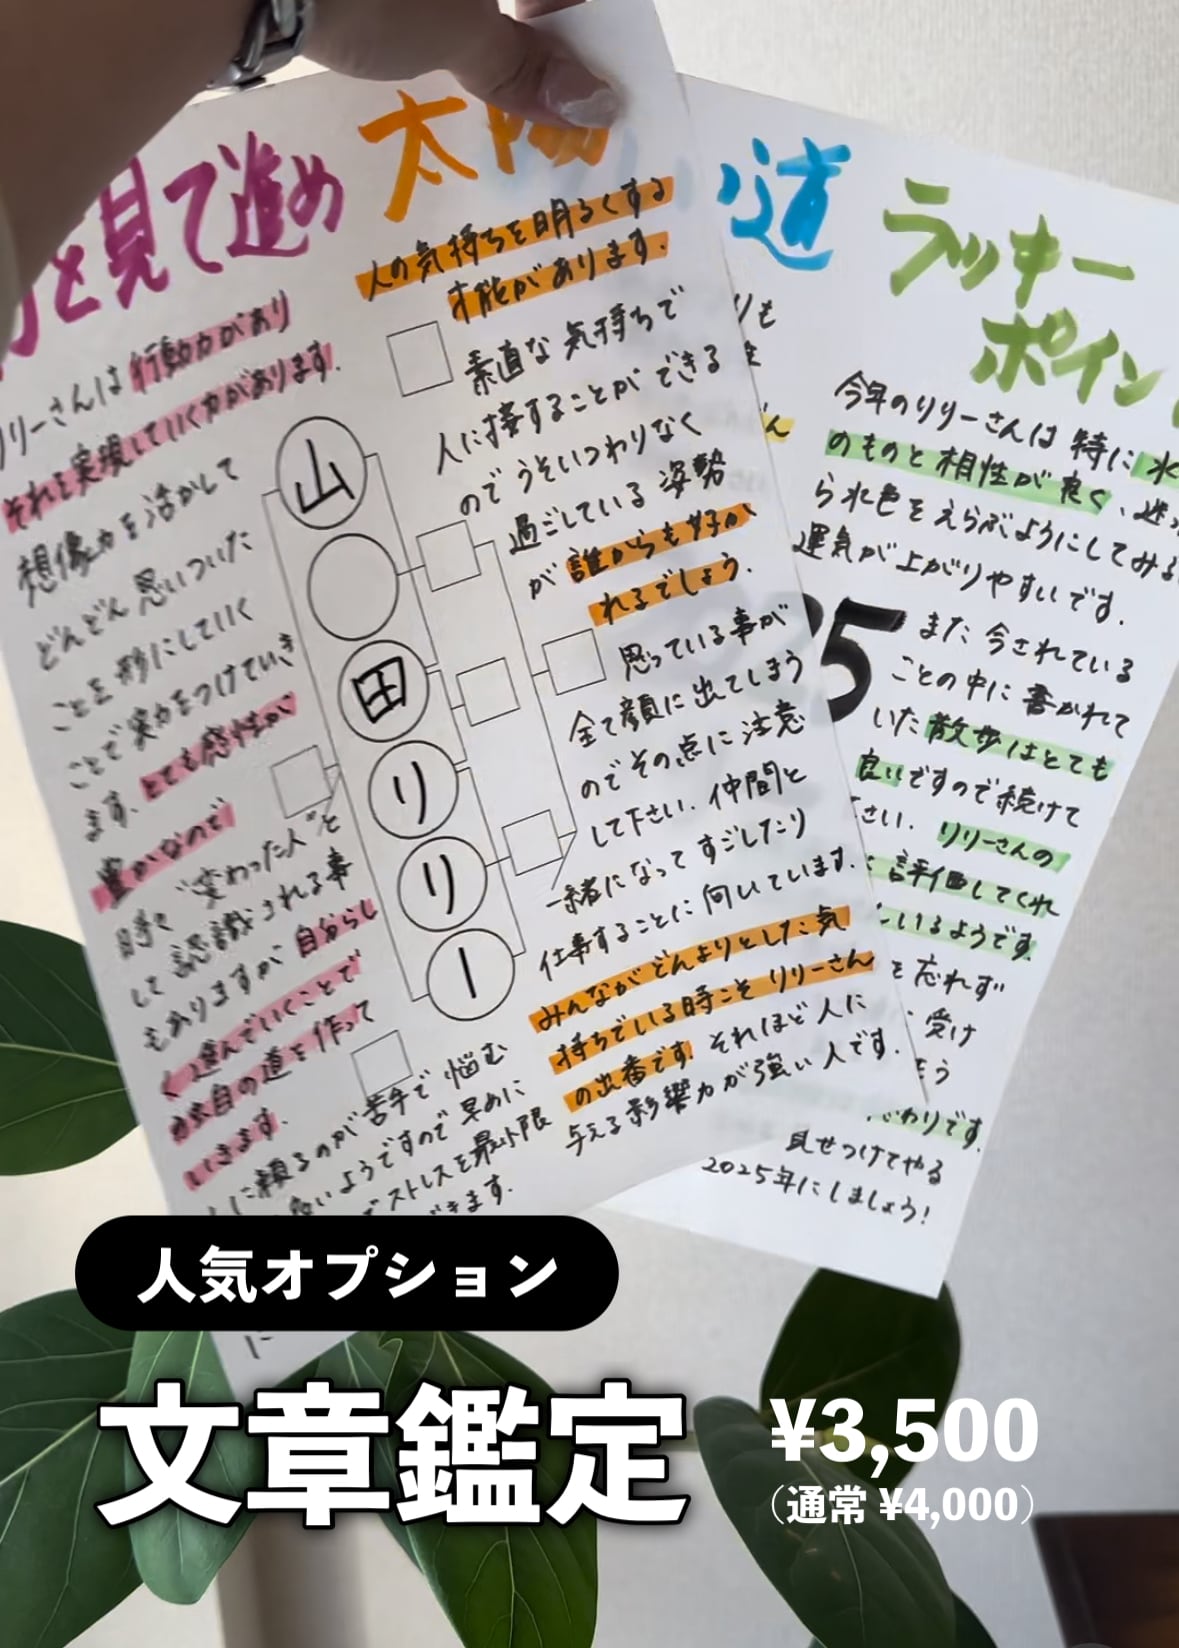 と見て進め
リリーさんは行動力があり
それを実現していく力があります。
想像力を活かして
どんどん思いついた
ことを形にしていく
ことで実力をつけていき
ます。とても感性が
豊かなので
時々"変わった人"と
して認識される事
もありますが自分らし
く進んでいくことで
独自の道を作って
いきます。
に頼るのが苦手で悩む
ようですので早めに
ストレスを最小限
できます。
山
田
リ
リ
ー
太陽
人の気持ちを明るくする
才能があります。
素直な気持ちで
人に接することができる
のでうそいつわりなく
過ごしている姿勢
が誰からも好か
れるでしょう。
思っている事が
全て顔に出てしまう
のでその点に注意
して下さい。仲間と
一緒になってすごしたり
仕事することに向いています。
みんながどんよりとした気
持ちでいる時こそリリーさん
の出番です。それほど人に
与える影響力が強い人です。
い道
ラッキー
ポイン
今年のリリーさんは特に水
のものと相性が良く、迷っ
ら水色をえらぶようにしてみる
運気が上がりやすいです。
5
また今されている
ことの中に書かれて
いた散歩はとても
良いですので続けて
さい。リリーさんの
評価してくれ
いるようです。
を忘れず
受け
わりです。
見せつけてやる
2025年にしましょう!
人気オプション
文章鑑定
¥3,500
（通常 ¥4,000）